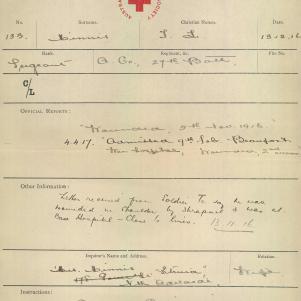 SOCIETY
AUSTRA
No. Surname. Christian Names. Date.
133. Minnis 13.12.16
Rank. Regiment, &c. File No.
Sergeant A Co., 27th Batt.
C/L
OFFICIAL REPORTS:
"Wounded, 5th Nov. 1916."
4.4.17. "Admitted 9th Feb. Beaufort
War Hospital, Wounded, 2nd
Other Information:
Letter received from Soldier To say he was
wounded in shoulder by shrapnel & was at
Base Hospital – Close to lines. 13.11.16
Inquirer's Name and Address. Relation.
Mrs. Minnis "Struia", Wife
Instructions: